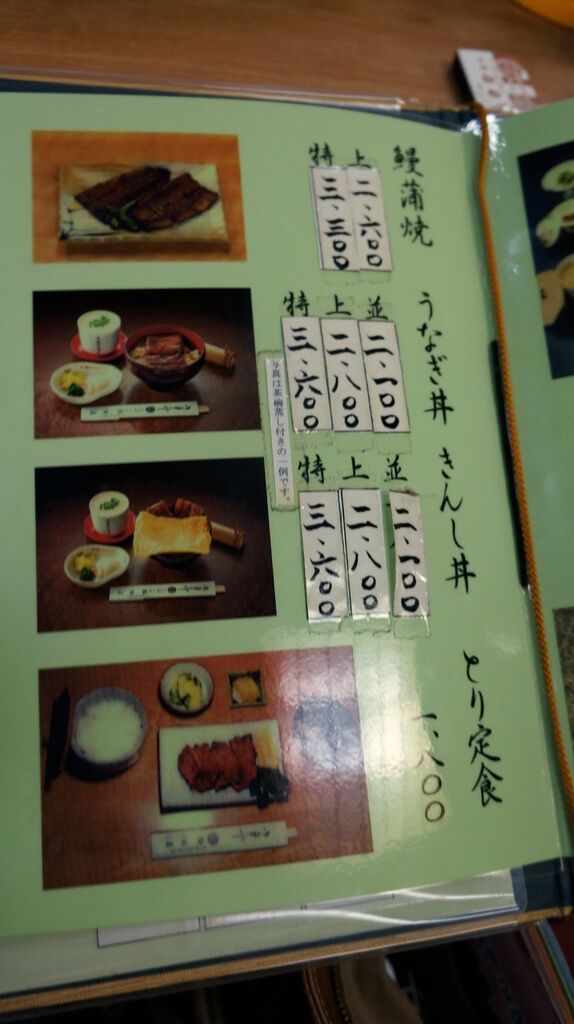 鰻蒲焼
上 二、六〇〇
特 三、三〇〇
うなぎ丼
並 二、一〇〇
上 二、八〇〇
特 三、六〇〇
写真は茶碗蒸し付きの一例です。
きんし丼
並 二、一〇〇
上 二、八〇〇
特 三、六〇〇
とり定食
一、八〇〇